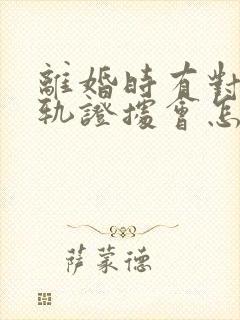 離婚時有對
軌證據會怎
萨蒙德